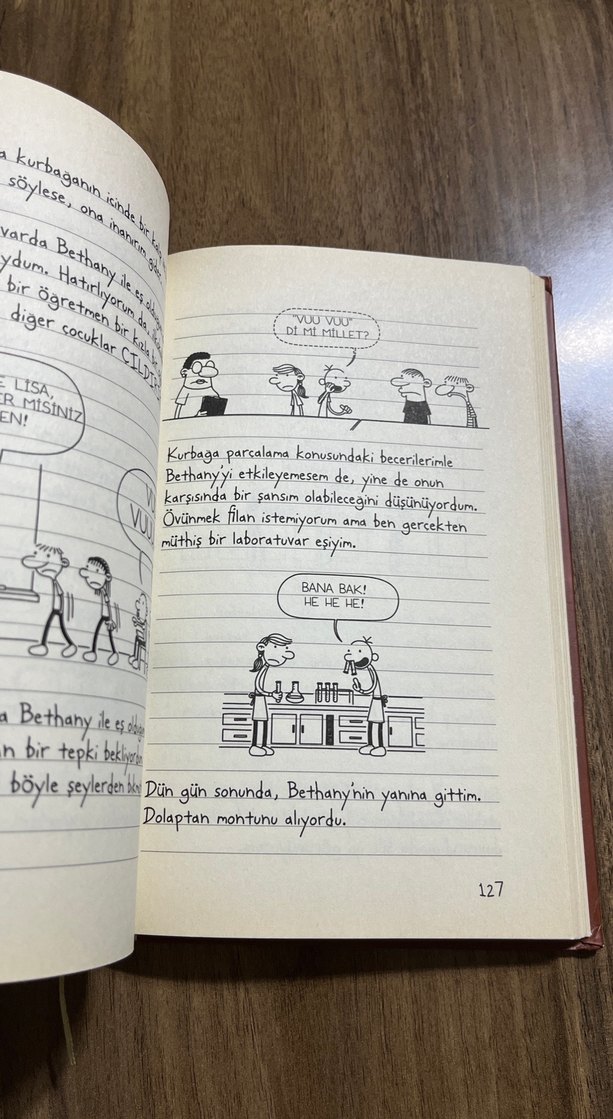 a kurbağanın içinde bir
söylese, ona inanırım
varda Bethany ile eş
ydum. Hatırlıyorum da,
bir öğretmen bir kızla
diğer cocuklar
E LISA,
ER MİSİNİZ
EN!
VUU
a Bethany ile eş
n bir tepki bekliyordum
böyle şeylerden
"VUU VUU"
Dİ Mİ MİLLET?
Kurbağa parcalama konusundaki becerilerimle
Bethany'yi etkileyemesem de, yine de onun
karşısında bir şansım olabileceğini düşünüyordum.
Övünmek filan istemiyorum ama ben gercekten
müthiş bir laboratuvar eşiyim.
BANA BAK!
HE HE HE!
Dün gün sonunda, Bethany'nin yanına gittim.
Dolaptan montunu alıyordu.
127